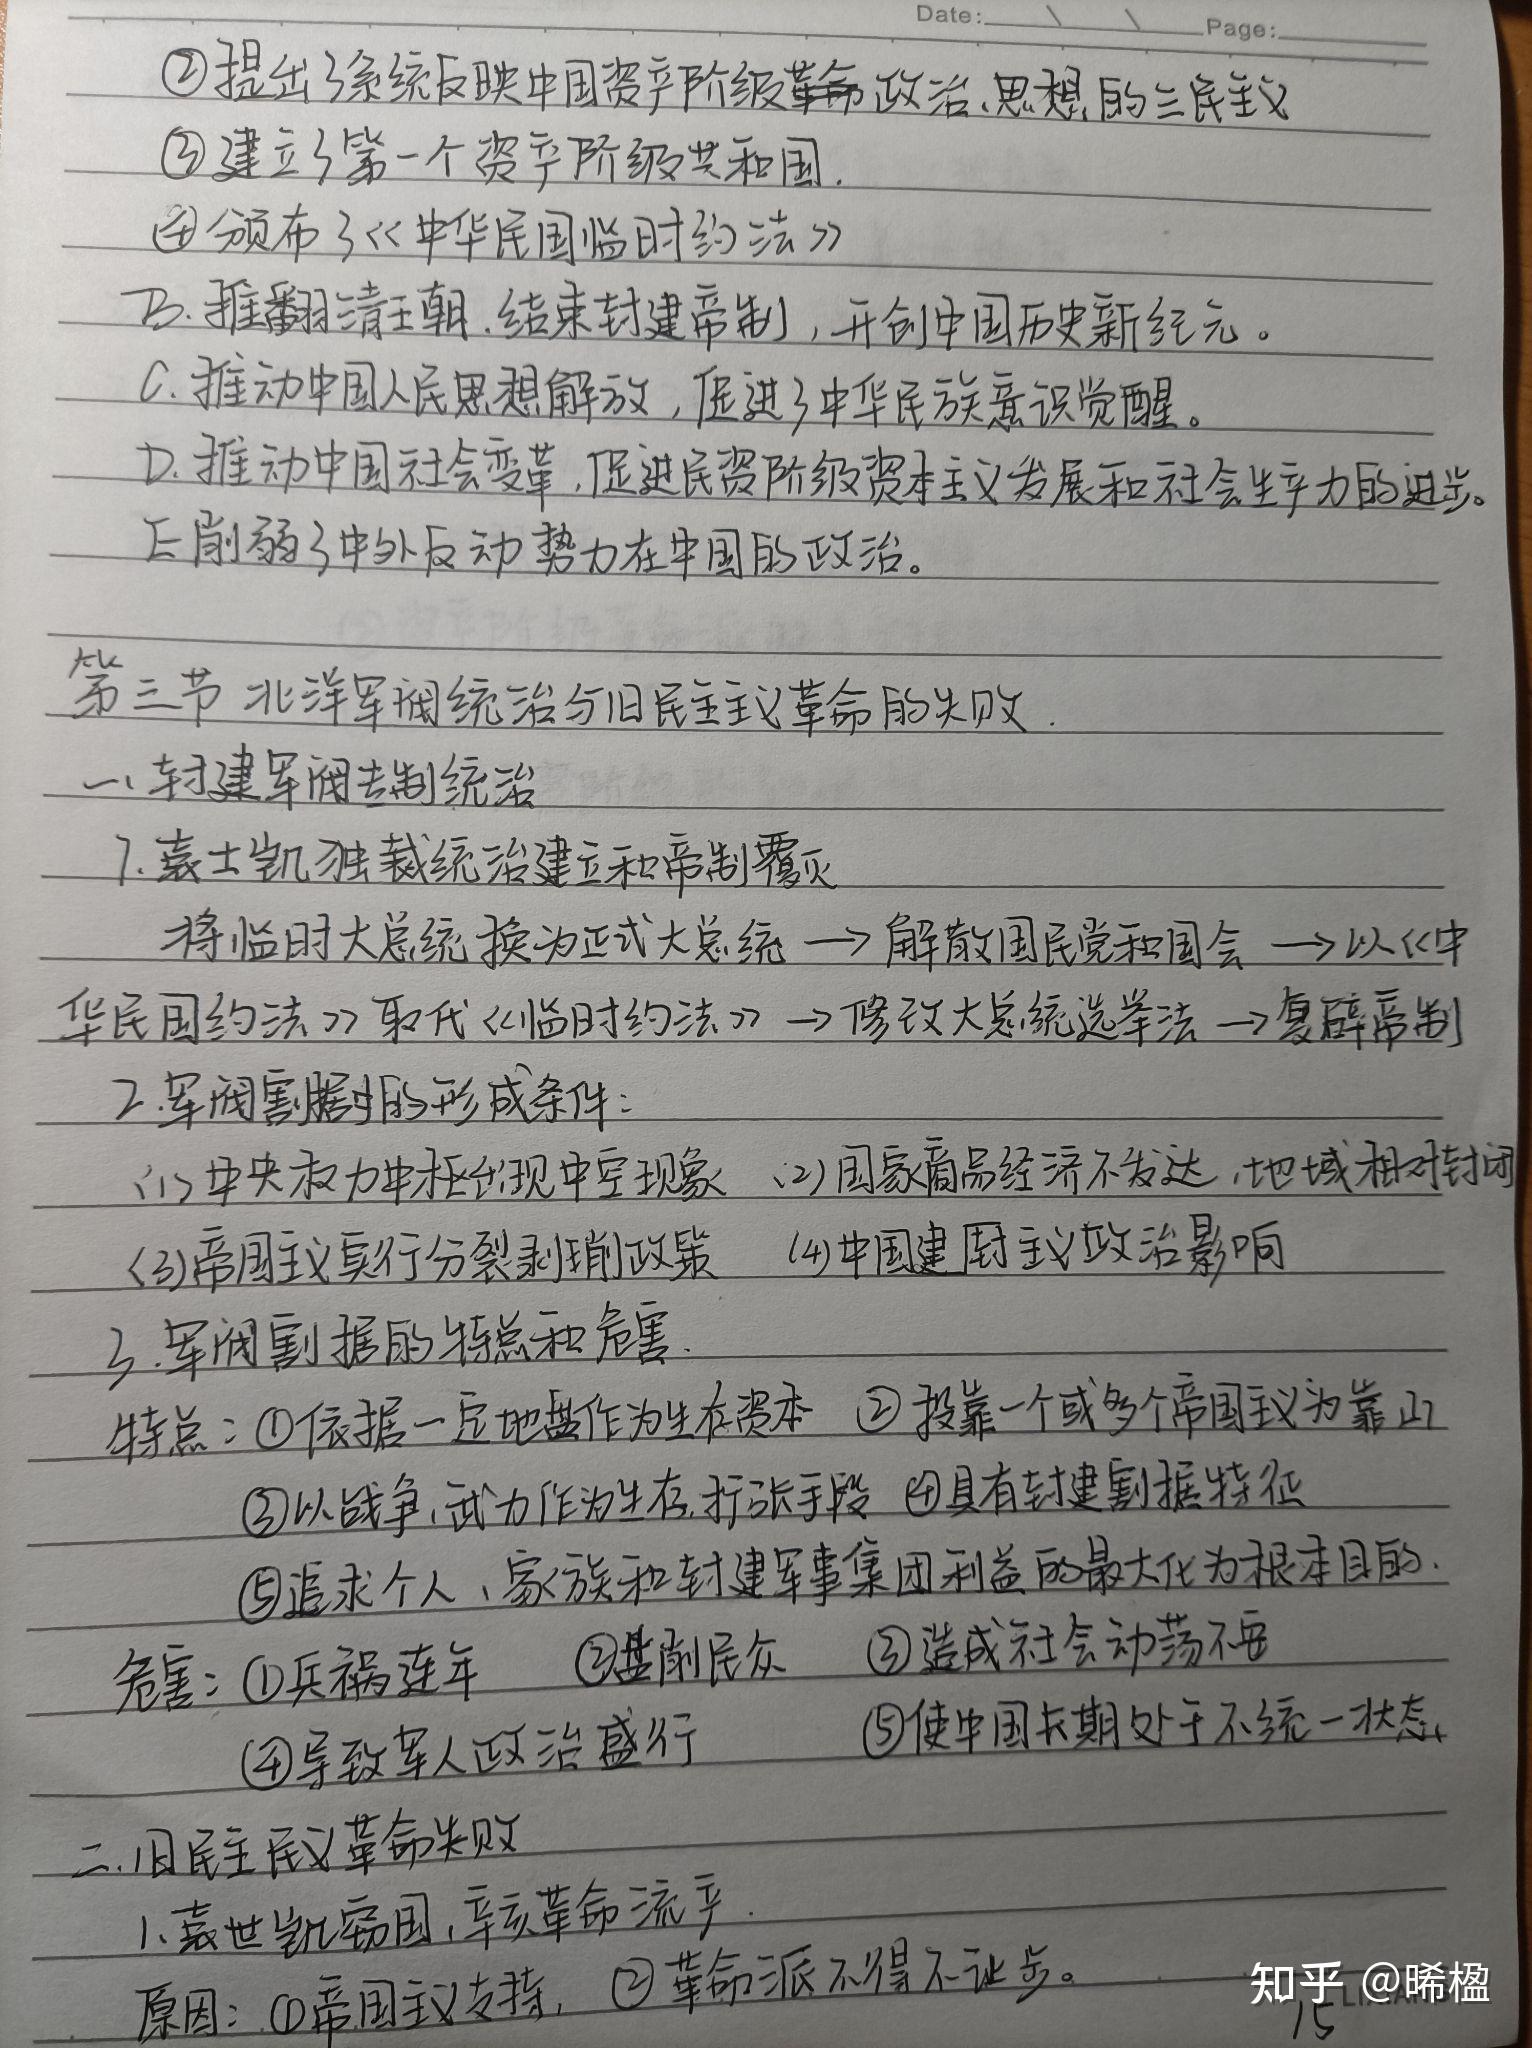 Date: \ \ Page:
②提出了系统反映中国资产阶级革命政治、思想的三民主义
③建立了第一个资产阶级共和国.
④颁布了《中华民国临时约法》
B.推翻清王朝.结束封建帝制,开创中国历史新纪元。
C.推动中国人民思想解放,促进了中华民族意识觉醒。
D.推动中国社会变革,促进民资阶级资本主义发展和社会生产力的进步。
E削弱了中外反动势力在中国的政治。
第三节 北洋军阀统治与旧民主主义革命的失败.
一、封建军阀专制统治
1.袁士凯独裁统治建立和帝制覆灭
将临时大总统换为正式大总统→解散国民党和国会→以《中
华民国约法》取代《临时约法》→修改大总统选举法→复辟帝制
2.军阀割据的形成条件:
(1)中央权力中枢出现中空现象 (2)国家商品经济不发达,地域相对封闭
(3)帝国主义实行分裂剥削政策 (4)中国建封主义政治影响
3.军阀割据的特点和危害.
特点:①依据一定地盘作为生存资本 ②投靠一个或多个帝国主义为靠山
③以战争、武力作为生存,扩张手段 ④具有封建割据特征
⑤追求个人、家族和封建军事集团利益的最大化为根本目的.
危害:①兵祸连年 ②盘削民众 ③造成社会动荡不安
④导致军人政治盛行 ⑤使中国长期处于不统一状态
二.旧民主民义革命失败
1.袁世凯窃国,辛亥革命流产.
原因:①帝国主义支持, ②革命派不得不让步。
知乎 @晞楹
15